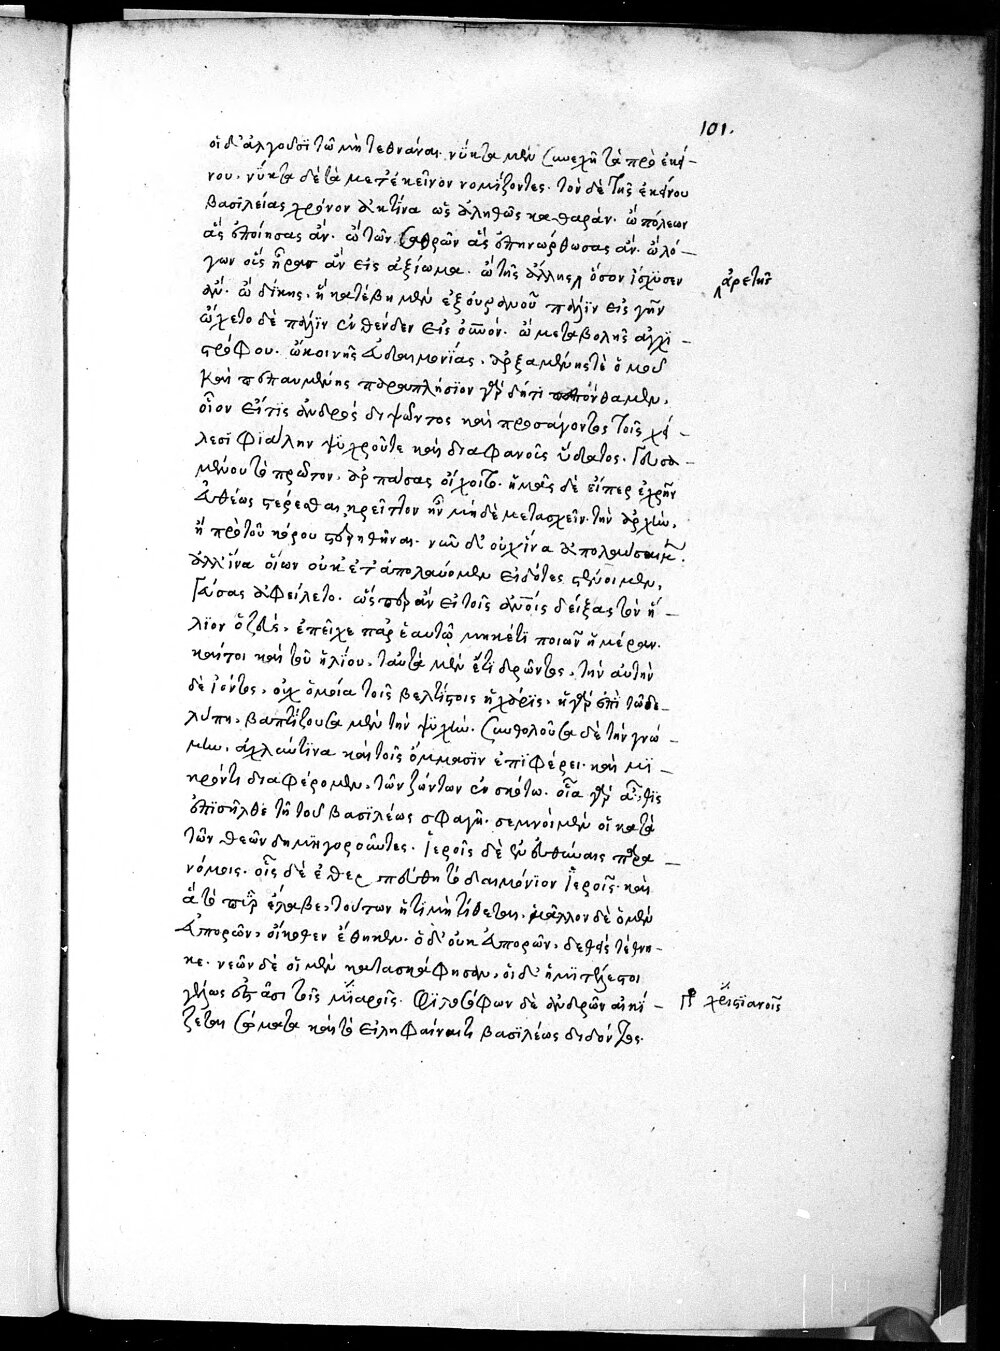 101.
οἱ δ' ἀλγοῦσι τῷ μὴ τεθνάναι. νύκτα μὲν συνεχῆ τὰ πρὸ ἐκεί-
νου. νύκτα δὲ τὰ μετ' ἐκεῖνον νομίζοντες. τὸν δὲ τῆς ἐκείνου
βασιλείας χρόνον ἀκτῖνα ὡς ἀληθῶς καθαράν. ὢ πόλεων
ἃς ἐποίησας ἄν. ὢ τῶν σαθρῶν ἃς ἐπηνώρθωσας ἄν. ὢ λό-
γων οἷς ἦρας ἂν εἰς ἀξίωμα. ὢ τῆς ἄλλης ὅσον ἴσχυσεν
ἀρετῆς
ἄν. ὢ δίκης, ἣ κατέβη μὲν ἐξ οὐρανοῦ πάλιν εἰς γῆν
ᾤχετο δὲ πάλιν ἐνθένδεν εἰς οὐνόν. ὢ μεταβολῆς ἀγχι-
στρόφου. ὢ κοινῆς εὐδαιμονίας, ἀρξαμένης τὲ ὁμοῦ
καὶ πεπαυμένης παραπλήσιον γὰρ δή τι πεπόνθαμεν,
οἷον εἴ τις ἀνδρὸς διψῶντος καὶ προσάγοντος τοῖς χεί-
λεσι φιάλην ψυχροῦ τε καὶ διαφανοῦς ὕδατος. γευσα-
μένου τὸ πρῶτον, ἁρπάσας οἴχοιτο. ἡμᾶς δὲ εἴπερ ἐχρῆν
εὐθέως στέρεσθαι, κρεῖττον ἦν μὴ δὲ μετασχεῖν τὴν ἀρχὴν,
ἢ πρὸ τοῦ κόρου στερηθῆναι. νῦν δ' οὐχ ἵνα ἀπολαύσωμεν.
ἀλλ' ἵνα οἵων οὐκέτ' ἀπολαύομεν εἰδότες στένοιμεν,
γεύσας ἀφείλετο. ὥσπερ ἂν εἰ τοῖς ἀνοις δείξας τὸν ἥ-
λιον ὁ ζεὺς, ἐπεῖχε παρ' ἑαυτῷ μηκέτι ποιῶν ἡμέραν.
καίτοι καὶ τοῦ ἡλίου, ταὐτὰ μὲν ἔτι δρῶντος, τὴν αὐτὴν
δὲ ἰόντος, οὐχ ὁμοία τοῖς βελτίστοις ἡ χάρις. ἡ γὰρ ἐπὶ τῶδε
λύπη, βαπτίζουσα μὲν τὴν ψυχὴν. συνθολοῦσα δὲ τὴν γνώ-
μην, ἀχλύν τινα καὶ τοῖς ὄμμασιν ἐπιφέρει. καὶ μι-
κρόν τι διαφέρομεν, τῶν ζώντων ἐν σκότω. οἷα γὰρ αὖθις
ἐπεισῆλθε τῆ τοῦ βασιλέως σφαγῆ. σεμνοὶ μὲν οἱ κατὰ
τῶν θεῶν δημηγοροῦντες. ἱερεῖς δὲ ἐν εὐθύναις παρα-
νόμοις. οἷς δὲ ἐθεραπεύθη τὸ δαιμόνιον ἱερείοις. καὶ
ἃ τὸ πῦρ ἔλαβε, τούτων ἡ τιμὴ τίθεται. μᾶλλον δὲ ὁ μὲν
εὐπορῶν, οἴκοθεν ἔθηκεν. ὁ δ' οὐκ εὐπορῶν, δεθεὶς τέθνη-
κε. νεῶν δὲ οἱ μὲν κατασκάφησαν, οἱ δ' ἡμιτέλεστοι
γέλως ἑστᾶσι τοῖς μιαροῖς. φιλοσόφων δὲ ἀνδρῶν αἰκί-
γρ χριστιανοῖς
ζεται σώματα καὶ τὸ εἰληφέναι τι βασιλέως διδόντος.